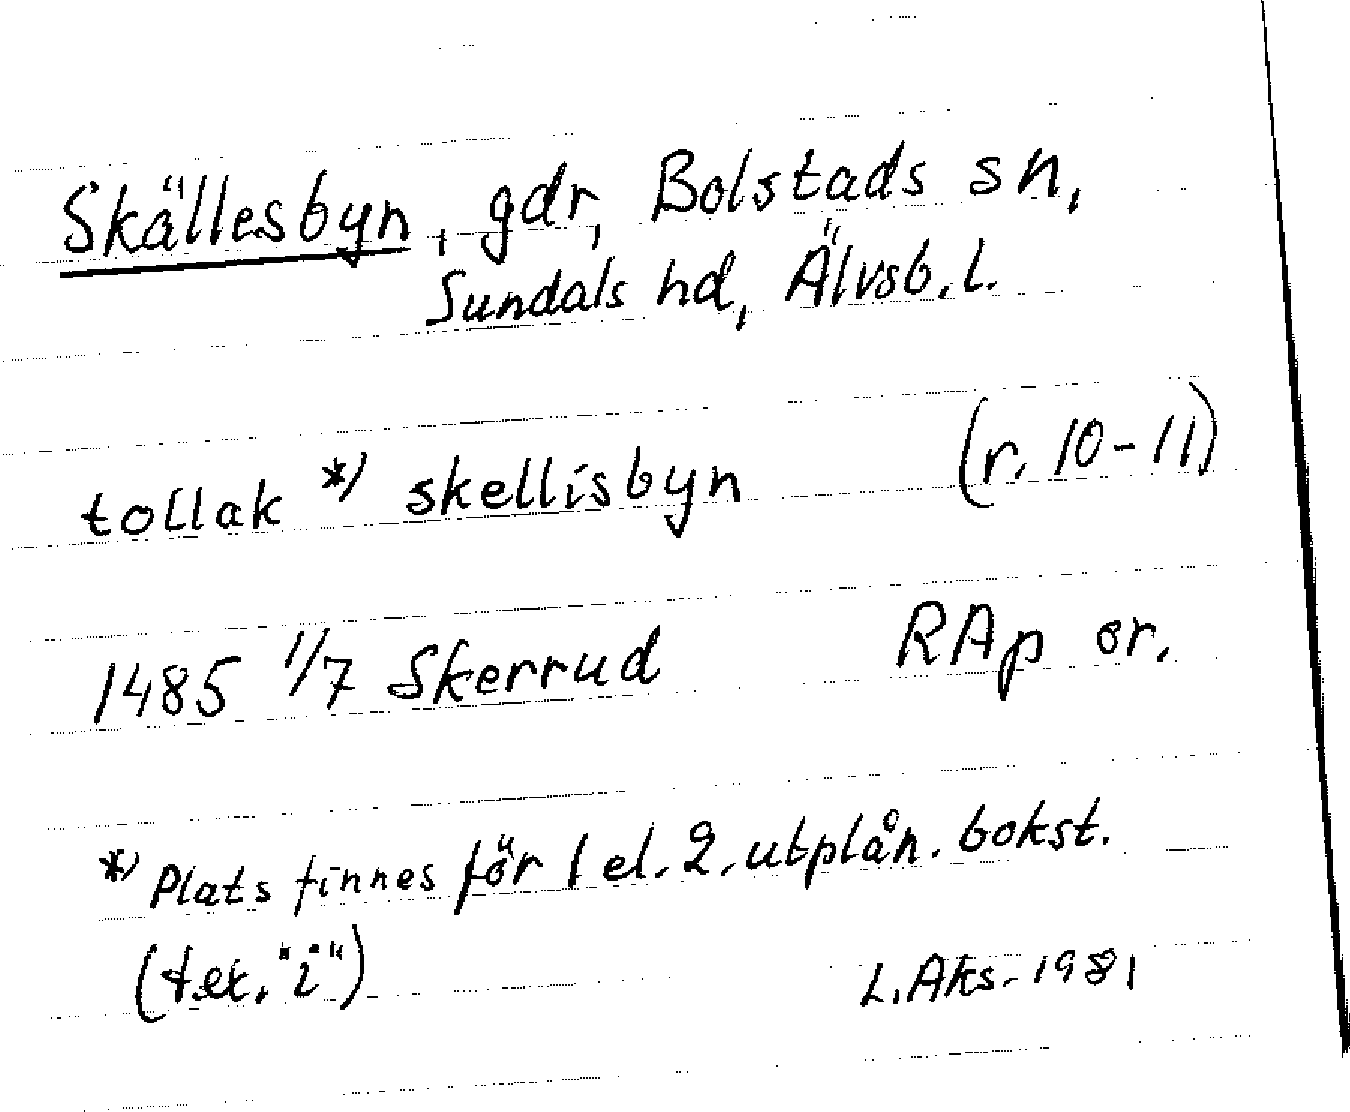 Skällesbyn, gdr, Bolstads sn,
Sundals hd, Älvsb. l.
tollak *) skellisbyn (r. 10-11)
1485 1/7 Skerrud RAp or.
*) Plats finnes för 1 el. 2. utplån. bokst.
(t.ex. "i")
L. Aks. 1981